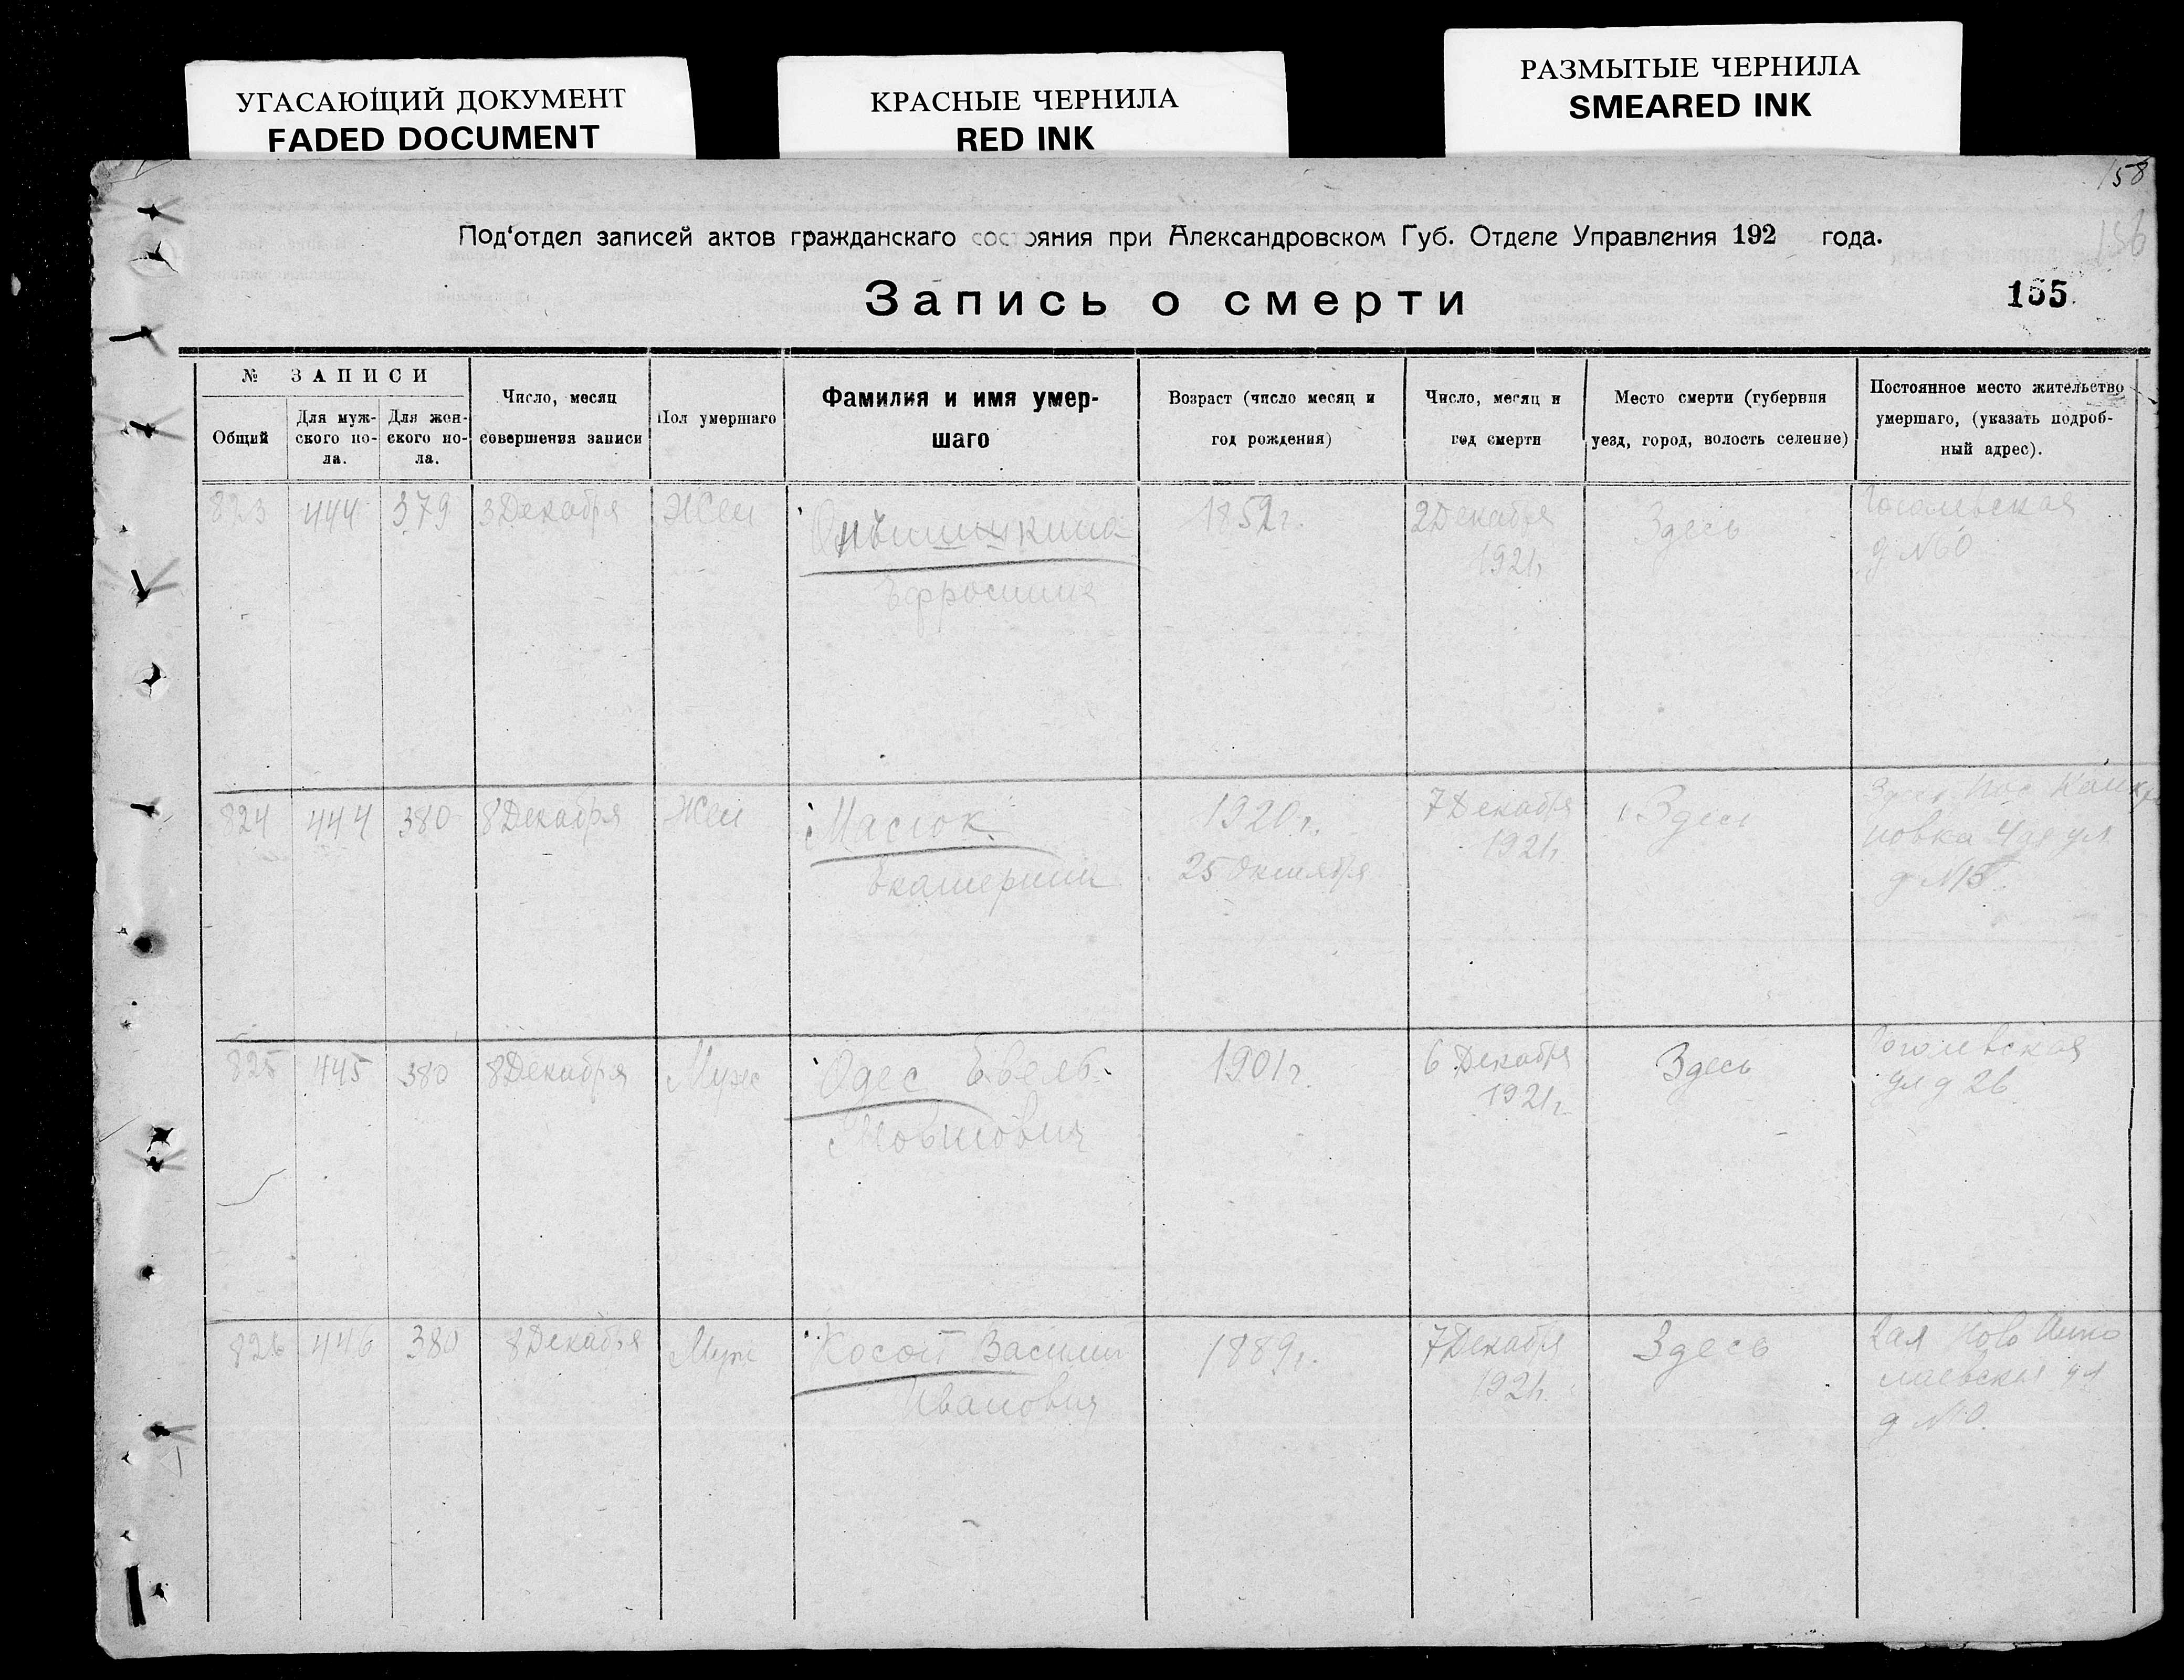 УГАСАЮЩИЙ ДОКУМЕНТ
FADED DOCUMENT
КРАСНЫЕ ЧЕРНИЛА
RED INK
РАЗМЫТЫЕ ЧЕРНИЛА
SMEARED INK
158
156
Под'отдел записей актов гражданскаго состояния при Александровском Губ. Отделе Управления 192 года.
Запись о смерти
155.
№ ЗАПИСИ
Общий
Для муж-
ского по-
ла.
Для жен-
ского по-
ла.
Число, месяц
совершения записи
Пол умершаго
Фамилия и имя умер-
шаго
Возраст (число месяц и
год рождения)
Число, месяц и
год смерти
Место смерти (губерния
уезд, город, волость селение)
Постоянное место жительство
умершаго, (указать подроб-
ный адрес).
823 444 379 3 Декабря Жен
Ефросиния
1852 г.
2 Декабря
1921 г.
Здесь
Гоголевская
д №60
824 444 380 8 Декабря Жен
Масюк
Екатерина
1920 г.
25 Октября
7 Декабря
1921 г.
Здесь
Здесь пос
новка 4ая ул
д №
825 445 380 8 Декабря Муж
Одес
1901 г.
6 Декабря
1921 г.
Здесь
Гоголевская
ул д 26
826 446 380 8 Декабря Муж
Косой Василий
Иванович
1889 г.
7 Декабря
1921 г.
Здесь
2ая Ново Нико
лаевская ул
д №